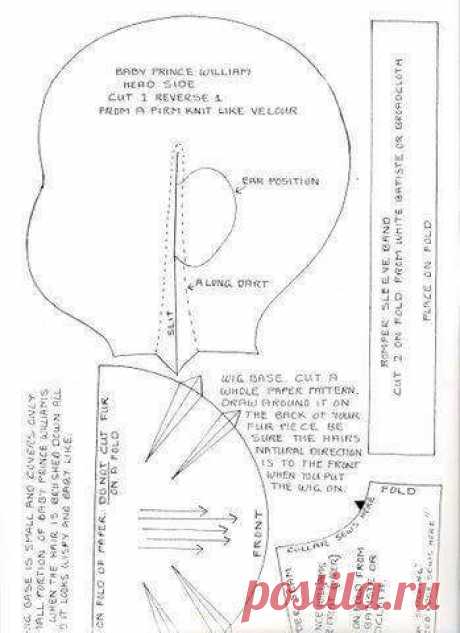 BABY PRINCE WILLIAM
HEAD SIDE
CUT 1 REVERSE 1
FROM A FIRM KNIT LIKE VELOUR
EAR POSITION
ALONG DART
SLIT
ROMPER SLEEVE BAND
CUT 2 ON FOLD FROM WHITE BATISTE OR BROADCLOTH
PLACE ON FOLD
WIG BASE. CUT A
WHOLE PAPER PATTERN.
DRAW AROUND IT ON
THE BACK OF YOUR
FUR PIECE. BE
SURE THE HAIRS
NATURAL DIRECTION
IS TO THE FRONT
WHEN YOU PUT
THE WIG ON.
BASE IS SMALL AND COVERS ONLY
PORTION OF BABY PRINCE WILLIAMS
WHEN THE HAIR IS BRUSHED DOWN ALL
IT LOOKS WISPY AND BABY LIKE.
ON FOLD OF PAPER. DO NOT CUT FUR
ON A FOLD
FRONT
FOLD
COLLAR SEWS HERE
ON FOLD FROM
OR
posila.ru